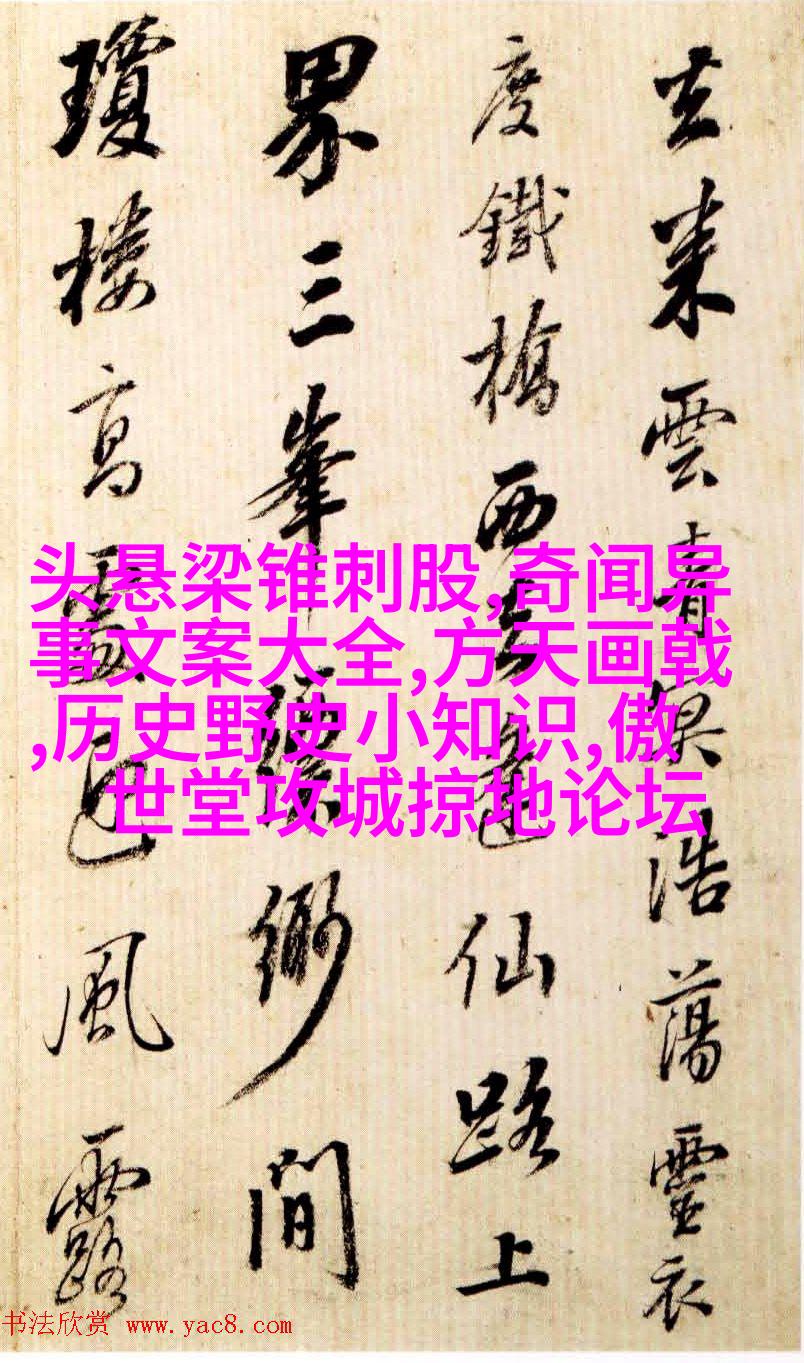 去来雲青冥浩蕩靈衣
度鐵橋西去仙路上
界三峯間
瓊樓高風露
头悬梁锥刺股,奇闻异
事文案大全,方天画戟
,历史野史小知识,傲
世堂攻城掠地论坛
书法欣赏 www.yac8.com